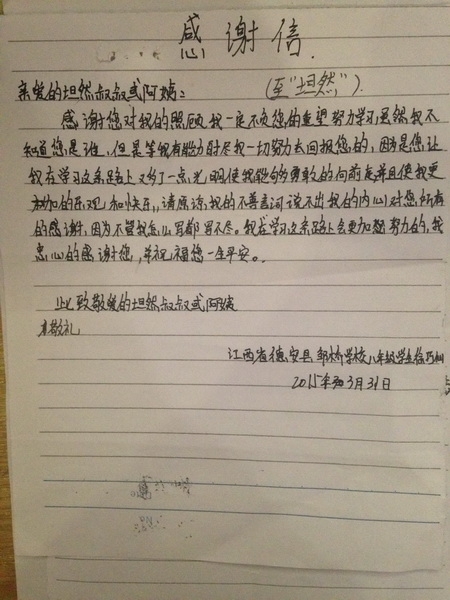 感谢信
亲爱的坦然叔叔或阿姨： (至"坦然")
感谢您对我的照顾我一定不负您的重望努力学习虽然我不
知道您是谁，但是等我有能力时尽我一切努力去回报您的，因是您让
我在学习这条路上又多了一点光明使我能够勇敢的向前走并且使我更
加的乐观和快乐，请原谅我的不善言词说不出我的内心对您所有
的感谢，因为不管我怎么写都写不尽。我在学习这条路上会更加努力的，我
忠心的感谢您，并祝福您一生平安。
此致敬爱的坦然叔叔或阿姨
敬礼
江西省德安县邹桥学校八年级学生徐巧
2015年3月31日